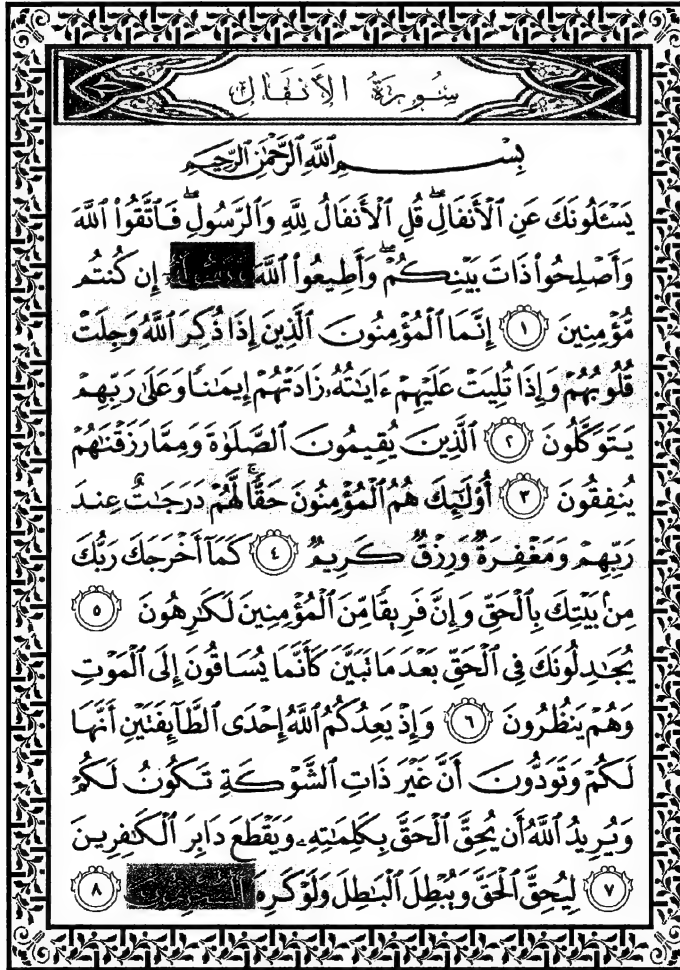 سُورَةُ الأَنفَالِ
بِسْمِ ٱللَّهِ ٱلرَّحْمَٰنِ ٱلرَّحِيمِ
يَسْـَٔلُونَكَ عَنِ ٱلْأَنفَالِۖ قُلِ ٱلْأَنفَالُ لِلَّهِ وَٱلرَّسُولِۖ فَٱتَّقُوا۟ ٱللَّهَ
وَأَصْلِحُوا۟ ذَاتَ بَيْنِكُمْۖ وَأَطِيعُوا۟ ٱللَّهَ إِن كُنتُم
مُّؤْمِنِينَ ١ إِنَّمَا ٱلْمُؤْمِنُونَ ٱلَّذِينَ إِذَا ذُكِرَ ٱللَّهُ وَجِلَتْ
قُلُوبُهُمْ وَإِذَا تُلِيَتْ عَلَيْهِمْ ءَايَٰتُهُۥ زَادَتْهُمْ إِيمَٰنًا وَعَلَىٰ رَبِّهِمْ
يَتَوَكَّلُونَ ٢ ٱلَّذِينَ يُقِيمُونَ ٱلصَّلَوٰةَ وَمِمَّا رَزَقْنَٰهُمْ
يُنفِقُونَ ٣ أُو۟لَٰٓئِكَ هُمُ ٱلْمُؤْمِنُونَ حَقًّاۚ لَّهُمْ دَرَجَٰتٌ عِندَ
رَبِّهِمْ وَمَغْفِرَةٌ وَرِزْقٌ كَرِيمٌ ٤ كَمَآ أَخْرَجَكَ رَبُّكَ
مِنۢ بَيْتِكَ بِٱلْحَقِّ وَإِنَّ فَرِيقًا مِّنَ ٱلْمُؤْمِنِينَ لَكَٰرِهُونَ ٥
يُجَٰدِلُونَكَ فِى ٱلْحَقِّ بَعْدَ مَا تَبَيَّنَ كَأَنَّمَا يُسَاقُونَ إِلَى ٱلْمَوْتِ
وَهُمْ يَنظُرُونَ ٦ وَإِذْ يَعِدُكُمُ ٱللَّهُ إِحْدَى ٱلطَّآئِفَتَيْنِ أَنَّهَا
لَكُمْ وَتَوَدُّونَ أَنَّ غَيْرَ ذَاتِ ٱلشَّوْكَةِ تَكُونُ لَكُمْ
وَيُرِيدُ ٱللَّهُ أَن يُحِقَّ ٱلْحَقَّ بِكَلِمَٰتِهِۦ وَيَقْطَعَ دَابِرَ ٱلْكَٰفِرِينَ
٧ لِيُحِقَّ ٱلْحَقَّ وَيُبْطِلَ ٱلْبَٰطِلَ وَلَوْ كَرِهَ ٨